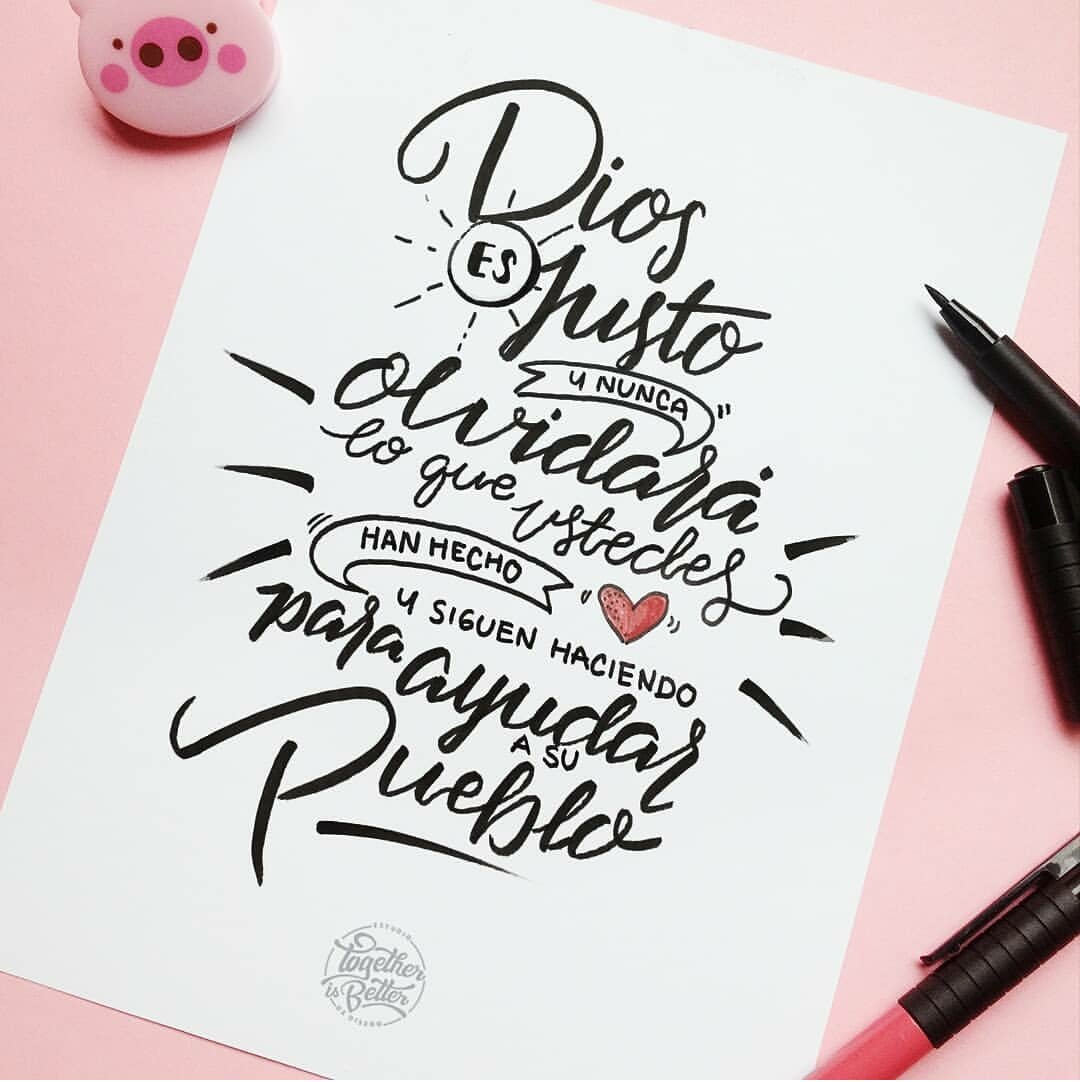 Dios
ES
Justo
y NUNCA
olvidará
lo que ustedes
HAN HECHO
y SIGUEN HACIENDO
para ayudar
A SU
Pueblo
ESTUDIO
Together
is Better
DE DISEÑO